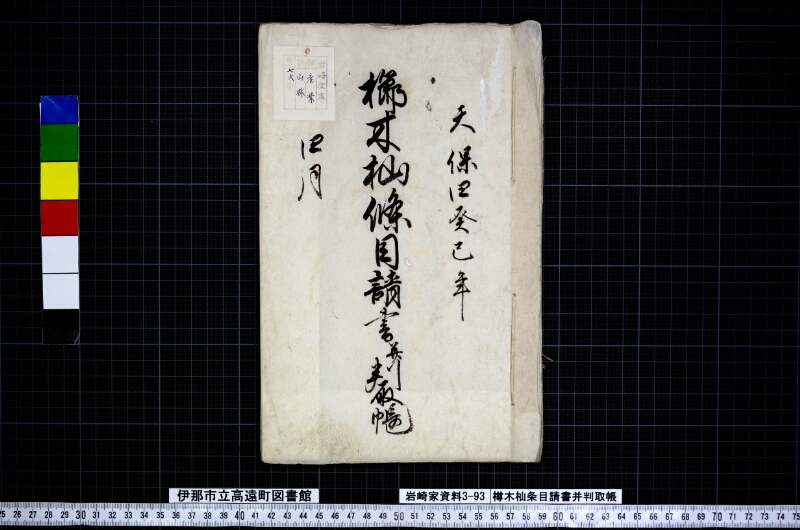 天保四癸巳年
榑木杣條目請書并判取帳
四月
岩崎家蔵
産業
山林
七六
伊那市立高遠町図書館
岩崎家資料3-93
榑木杣条目請書并判取帳
25 26 27 28 29 30 31 32 33 34 35 36 37 38 39 40 41 42 43 44 45 46 47 48 49 50 51 52 53 54 55 56 57 58 59 60 61 62 63 64 65 66 67 68 69 70 71 72 73 74 75